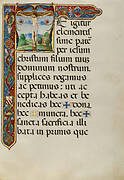 E igitur
elementissi
me pater
per iesum
christum filium tuum
dominum nostrum
supplices rogamus
ac petimus: uti ac
cepta habeas et be
nedicas hec dona
hec munera, hec
sancta sacrificia illi
bata in primis que